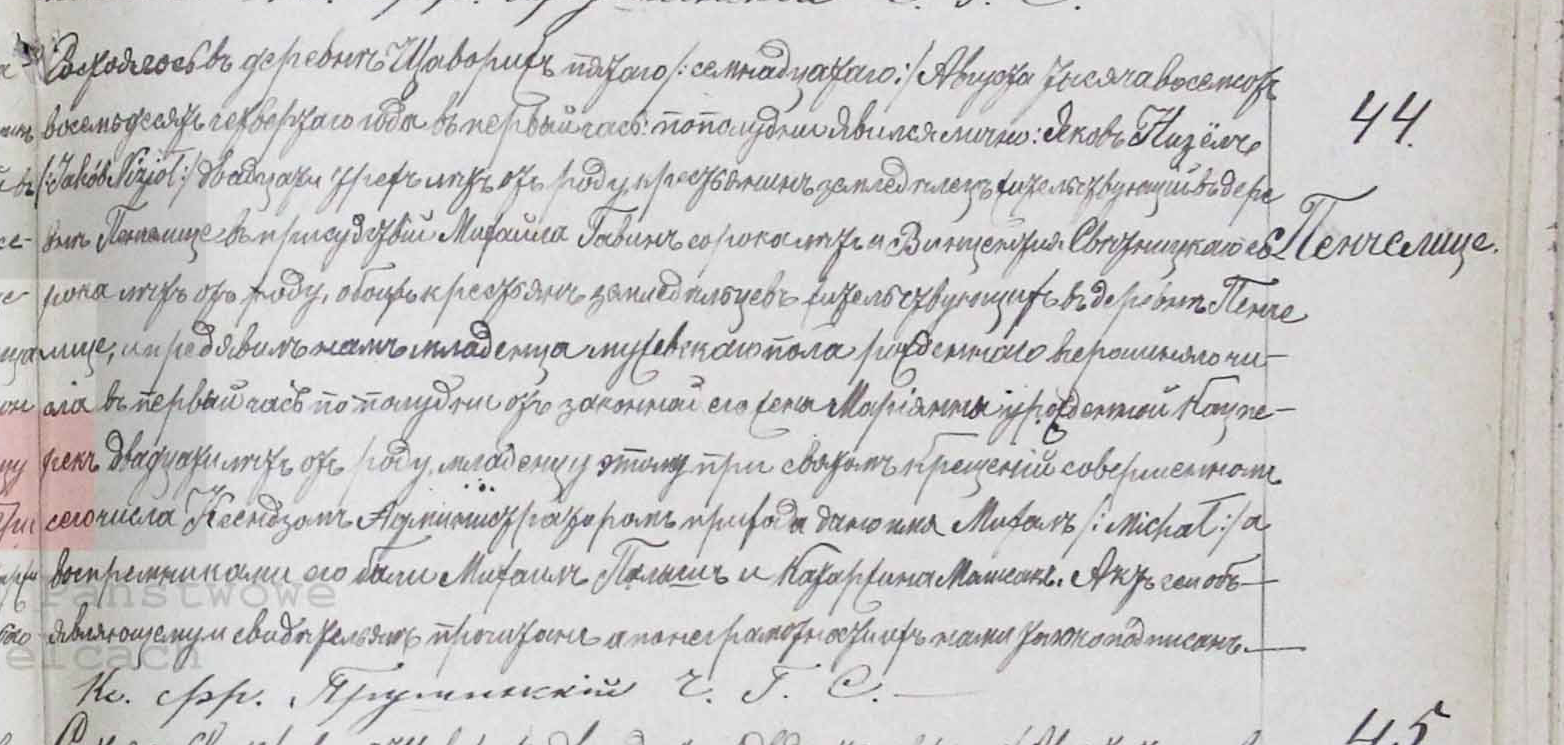 Состоялось въ деревнѣ Щаворихъ пятаго /:семнадцатаго:/ Августа тысяча восемсотъ
восемьдесятъ четвертаго года въ первый часъ пополудни явился лично: Яковъ Низёлъ
/:Jakób Nizioł:/ двадцати трехъ лѣтъ отъ роду крестьянинъ земледѣлецъ жительствующій въ дере
внѣ въ присудствіи Михаила Гавинъ сорока лѣтъ и Винцентія со
рока лѣтъ отъ роду, обоихъ крестьянъ земледѣльцевъ жительствующихъ въ деревнѣ Пенче
лице, и предявилъ намъ младенца мужевскаго пола рожденнаго вчерашняго чи-
сла въ первый часъ по полудни отъ законной его жены Маріянны урожденной
двадцати лѣтъ отъ роду, младенцу этому при святомъ Крещеніи совершенномъ
сего числа Ксендзомъ Администраторомъ прихода дано имя Михалъ /:Michał:/ а
воспремниками его были Михаилъ и Катаржина. Актъ сей объ-
являющему и свидѣтелямъ прочитанъ а по неграмотности ихъ нами только подписанъ.
Кс. фр. Ч. Г. С.
44.
Пенчелице.
45
Państwowe
elcach